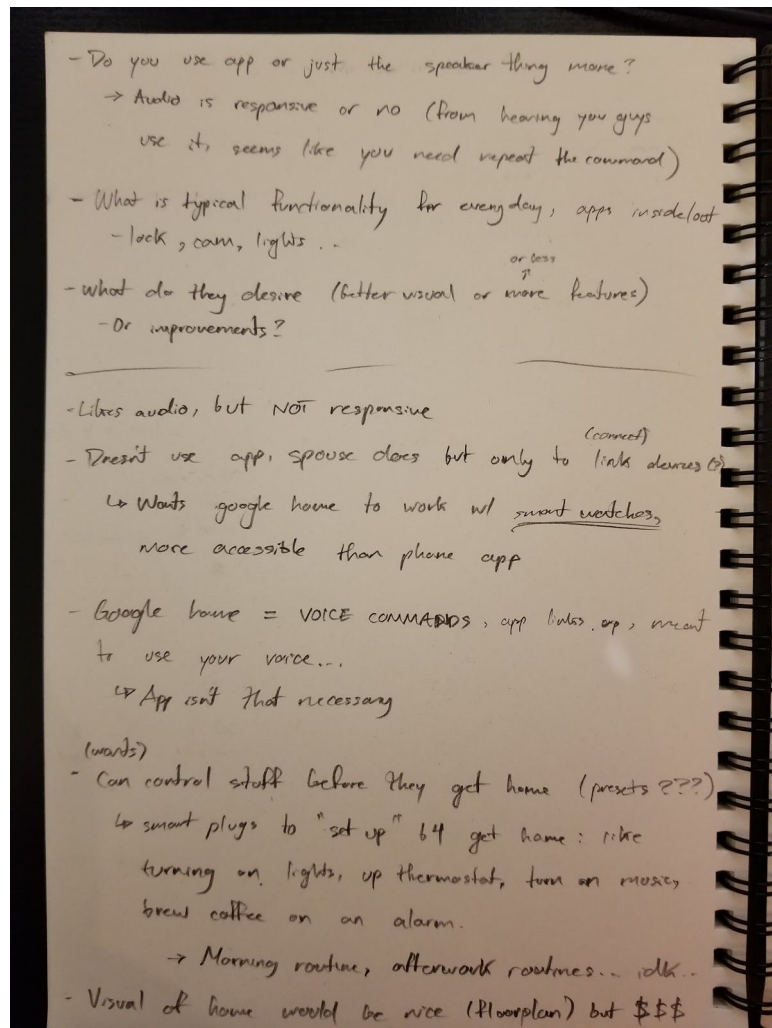 - Do you use app or just the speaker thing more?
→ Audio is responsive or no (from hearing you guys
use it, seems like you need repeat the command)
- What is typical functionality for everyday, apps inside/out
- lock, cam, lights ..
or less
↑
- What do they desire (better visual or more features)
- Or improvements?
- Likes audio, but NOT responsive
(connect)
- Doesn't use app, spouse does but only to link devices (?)
↳ Wants google home to work w/ smart watches,
more accessible than phone app
- Google home = VOICE COMMANDS, app links, meant
to use your voice...
↳ App isn't that necessary
(wants)
- Can control stuff before they get home (presets ???)
↳ smart plugs to "set up" b4 get home: like
turning on lights, up thermostat, turn on music,
brew coffee on an alarm.
→ Morning routine, afterwork routines... idk..
- Visual of home would be nice (floorplan) but $$$